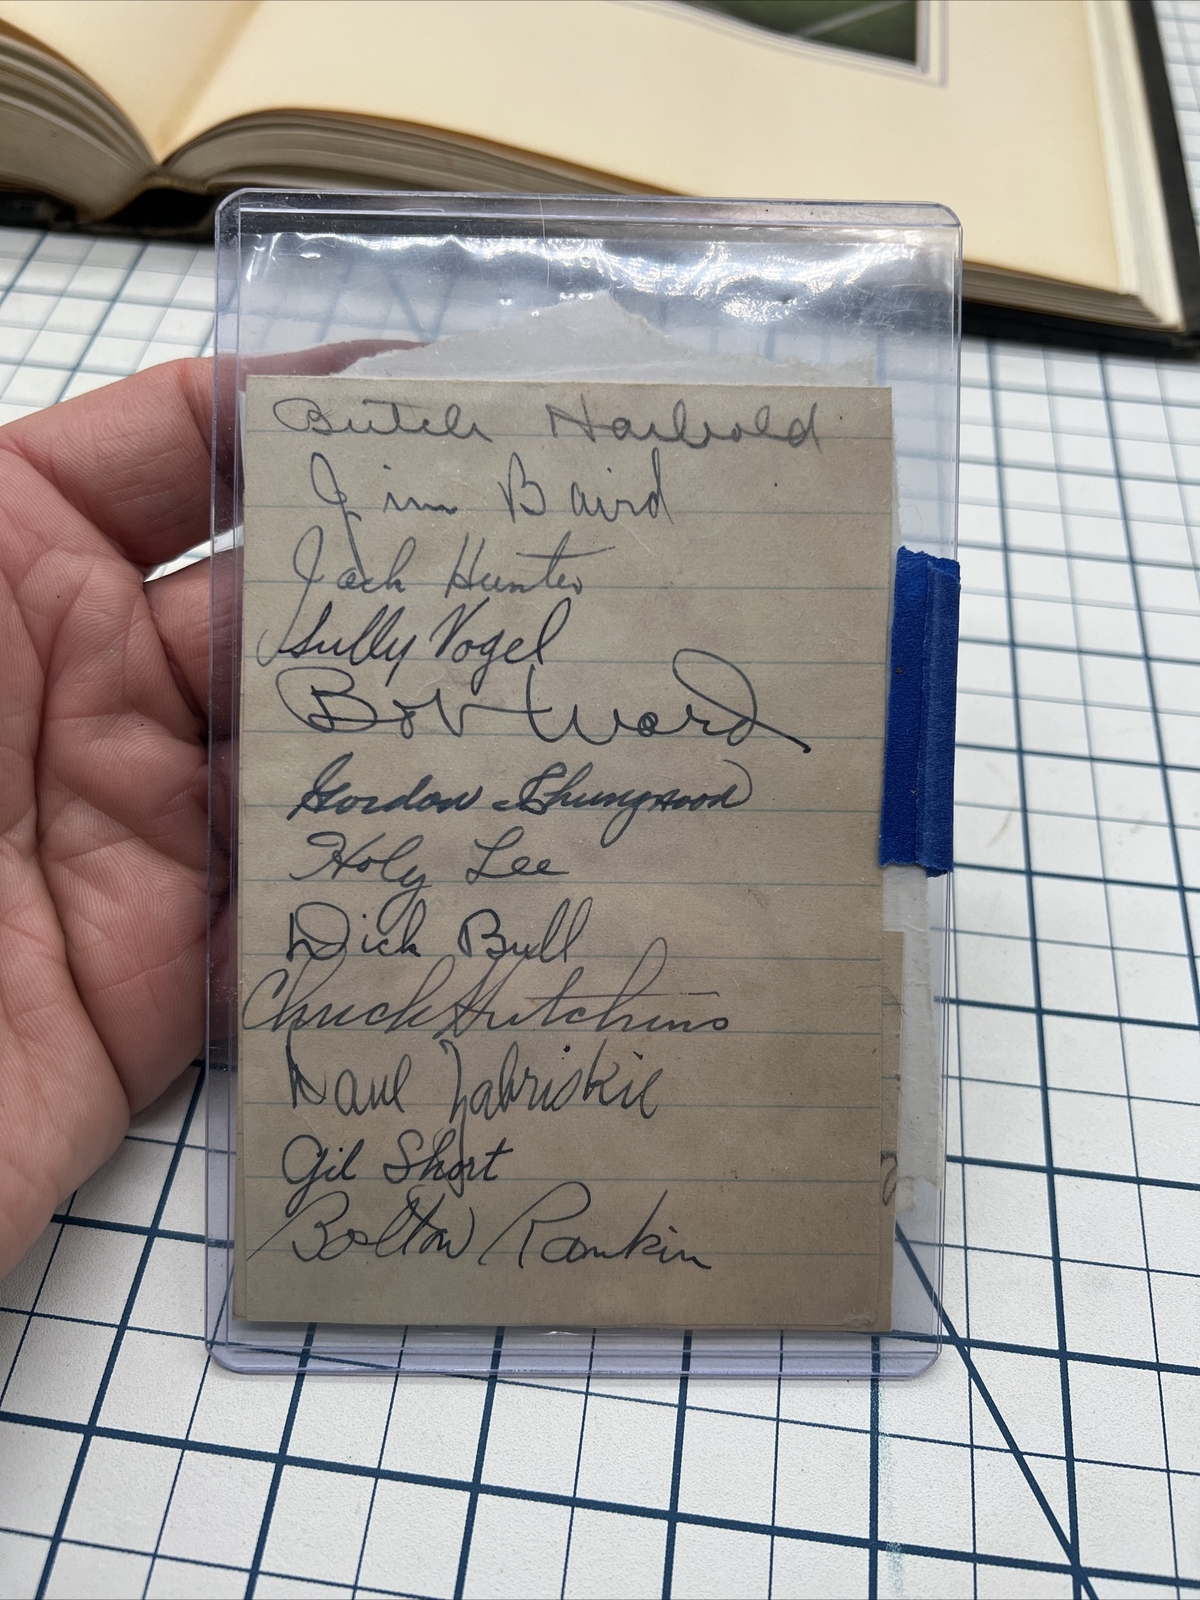 Butch Harbold
Jim Baird
Jack Hunter
Sully Vogel
Bob Ward
Gordon
Holy Lee
Dick Bull
Chuck Hutchins
Dave Zabriskie
Gil Short
Bolton Rankin